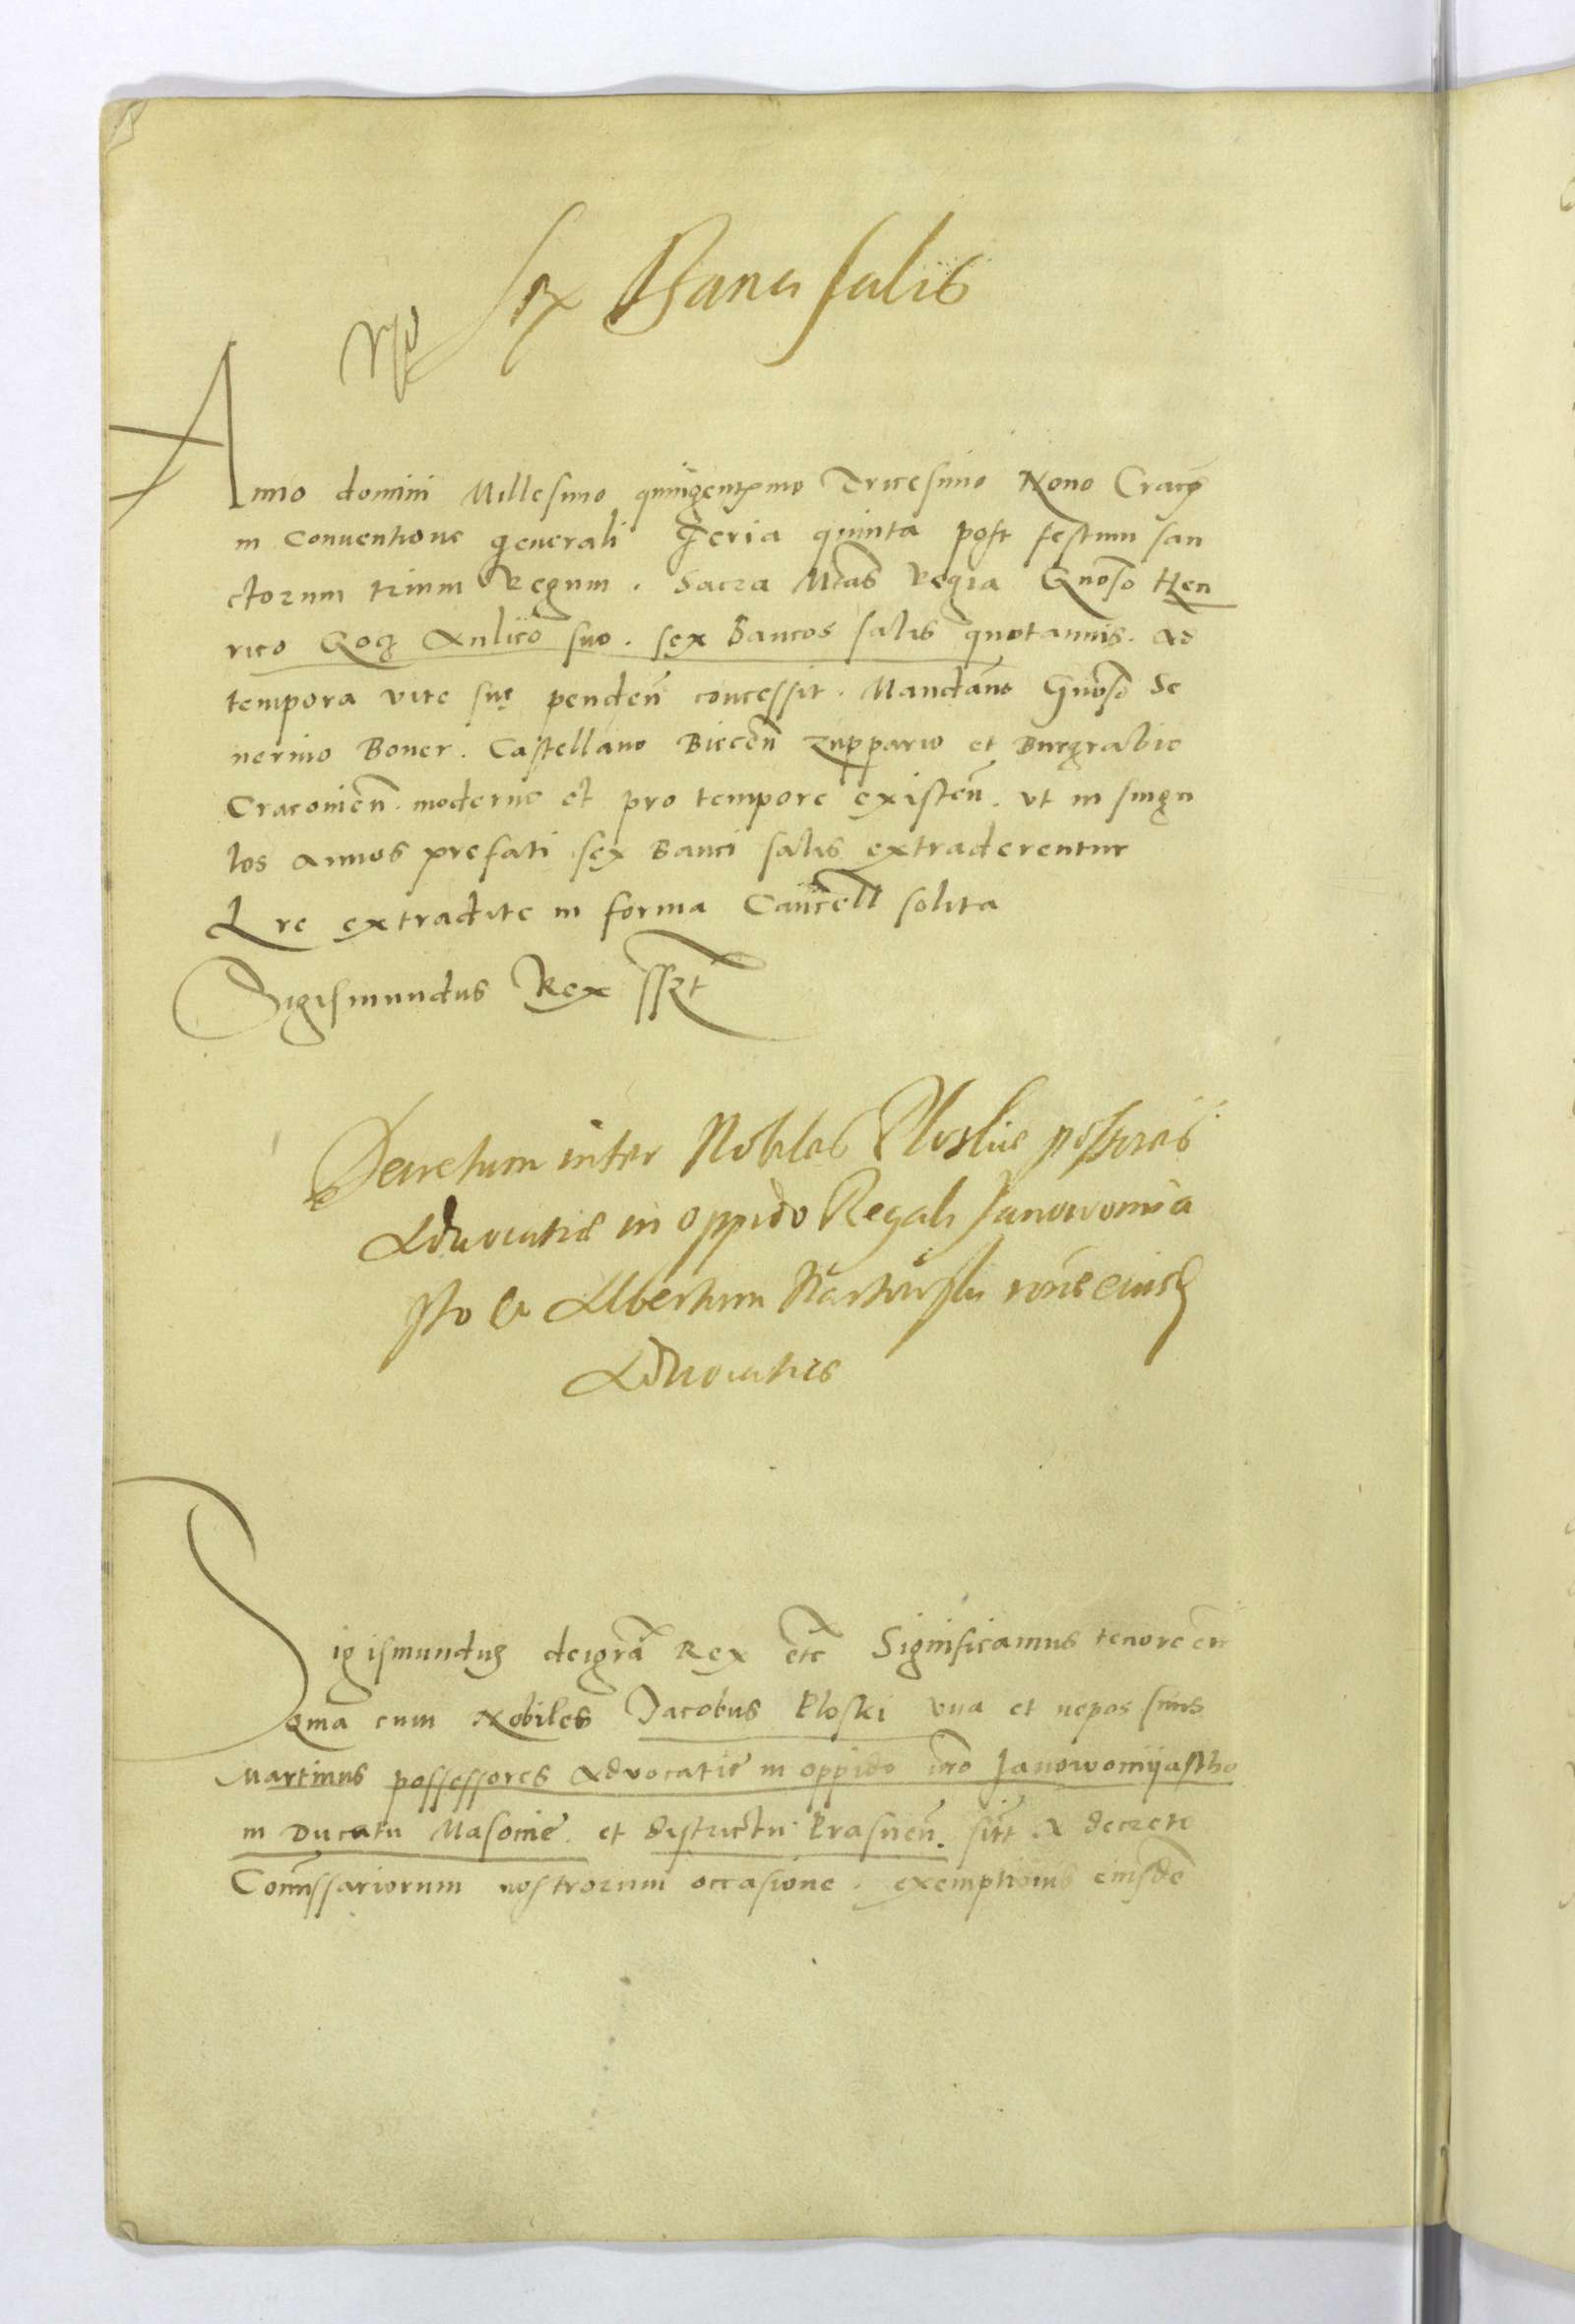 Sex Banci salis
Anno domini Millesimo quingentesimo Tricesimo Nono Cracoᵉ
in Conventione generali Feria quinta post festum san
ctorum trium Regum . Sacra Mtas Regia Gnoso Hen
rico Aulico suo . sex bancos salis quotannis . ad
tempora vite suę penden̄ concessit . Mandans Gnoso Se
uerino Boner . Castellano Biecen̄ zuppario et Burgrabio
Cracovien̄ . moderno et pro tempore existen̄ . vt in singu
los annos prefati sex Banci salis extraderentur
Lre extradite in forma Cancell solita
Sigismundus Rex sszt
Decretum inter Nobiles Ploskie possores
Advocatie in oppido Regali Janowomia
sto et Albertum rone eiusd
Advocatie
Sigismundus dei gra Rex etc Significamus tenore etc
Qma cum Nobiles Jacobus Ploski vna et nepos suus
Martinus possessores Advocatie in oppido nro Janowomyastho
in Ducatu Masovie . et districtu Prasnen̄ . sint A decreto
Comissariorum nostrorum occasione . exemptionis eiusde